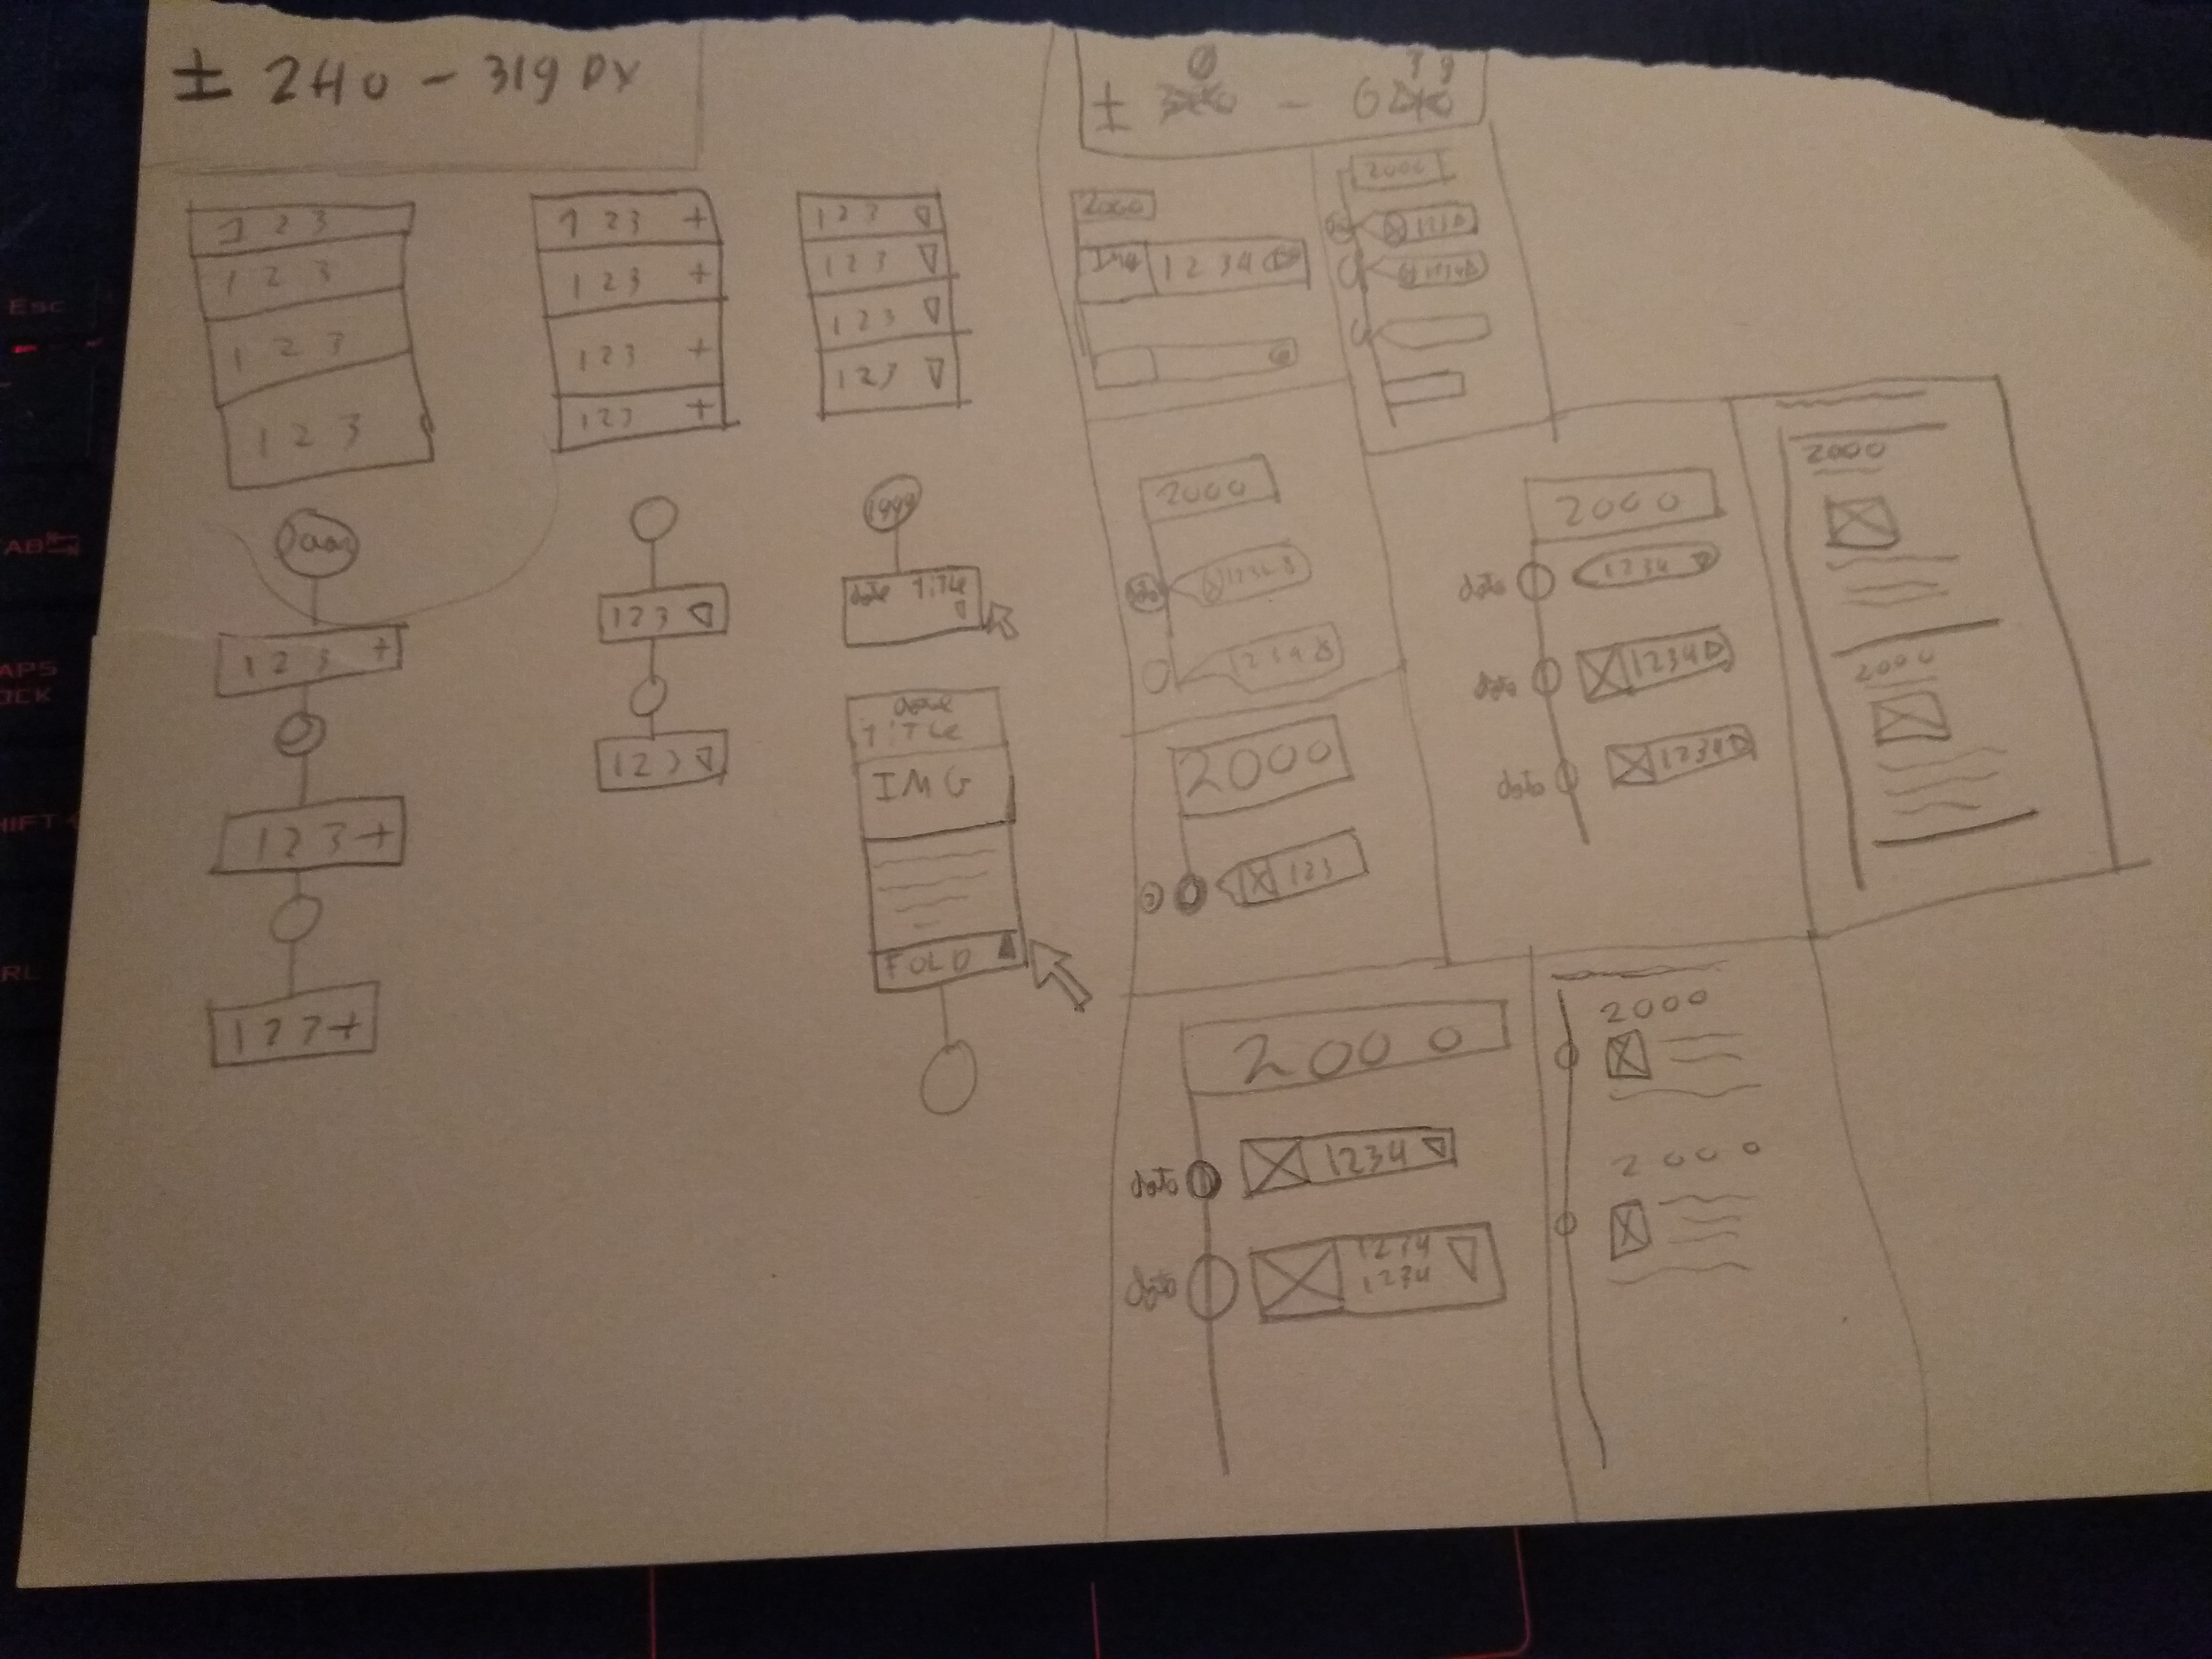 ± 240 - 319 px
1 2 3
1 2 3
1 2 3
1 2 3
1 2 3 +
1 2 3 +
1 2 3 +
1 2 3 +
1 2 3
1 2 3
1 2 3
1 2 3
1 2 3 +
1 2 3 +
1 2 3
1 2 3
1999
date title
date
TITLE
IMG
FOLD
±
2000
IMG 1 2 3 4
2000
123
1234
2000
1234
1234
2000
123
2000
date 1234
date 1234
date 1234
2000
2000
2000
date 1234
date 1234
1234
2000
2000
Esc
CTRL